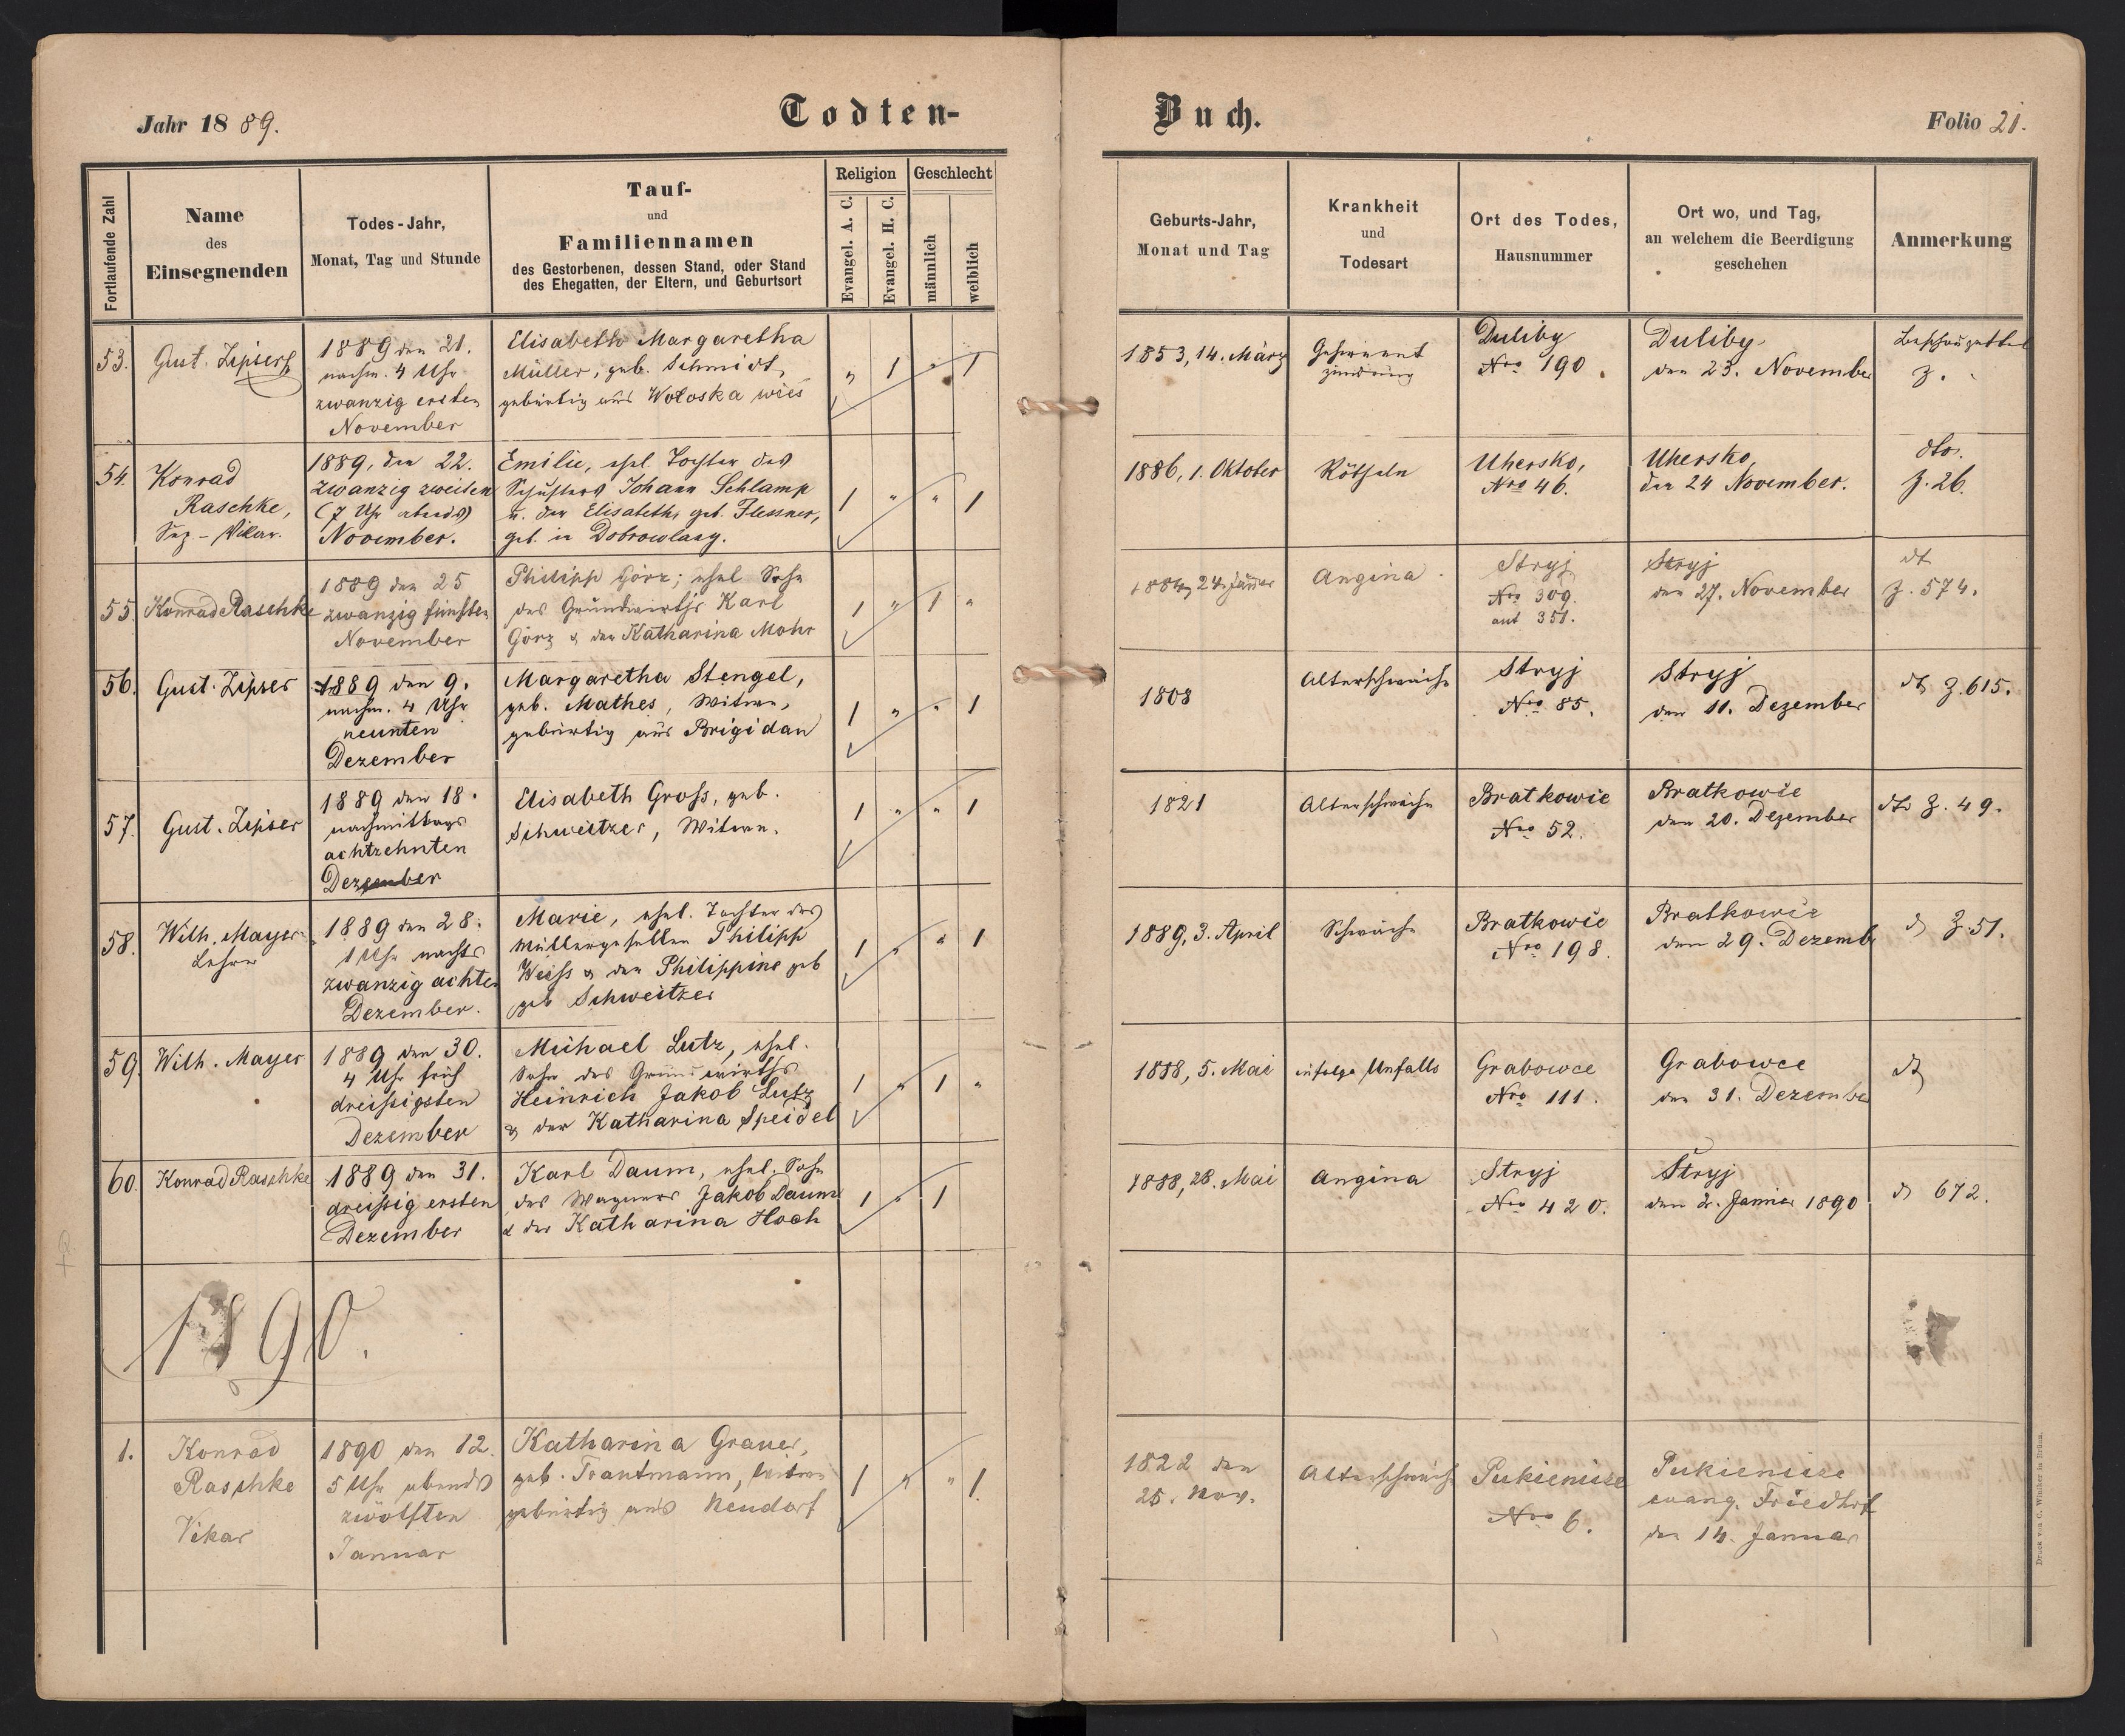 Jahr 1889.
Todten-
Buch.
Folio 21.
Fortlaufende Zahl
Name
des
Einsegnenden
Todes-Jahr,
Monat, Tag und Stunde
Tauf-
und
Familiennamen
des Gestorbenen, dessen Stand, oder Stand
des Ehegatten, der Eltern, und Geburtsort
Religion
Evangel. A. C.
Evangel. H. C.
Geschlecht
männlich
weiblich
Geburts-Jahr,
Monat und Tag
Krankheit
und
Todesart
Ort des Todes,
Hausnummer
Ort wo, und Tag,
an welchem die Beerdigung
geschehen
Anmerkung
53.
Gust. Zipser
1889 den 21.
nachm. 4 Uhr
zwanzig ersten
November
Elisabeth Margaretha
Müller, geb. Schmidt,
gebürtig aus Wołoska wieś
" 1 " 1
1853, 14. März
Duliby
Nro 190.
Duliby
den 23. November
Beschauzettel
Z.
54.
Konrad
Raschke,
Vikar.
1889, den 22.
zwanzig zweiten
(7 Uhr abends)
November.
Emilie, ehel. Tochter des
Schusters Johann Schlamp
u. der Elisabeth, geb. Flessner,
geb. in
1 " " 1
1886, 1. Oktober
Rötheln
Uhersko,
Nro 46.
Uhersko,
den 24 November.
dto.
Z. 26.
55.
Konrad Raschke
1889 den 25
zwanzig fünften
November
Philipp Görz; ehel Sohn
des Grundwirths Karl
Görz & der Katharina Mohr
1 " 1 "
24. Jänner
Angina.
Stryj
Nro 309.
351.
Stryj
den 27. November
dt
Z. 574.
56.
Gust. Zipser
1889 den 9.
nachm. 4 Uhr
neunten
Dezember
Margaretha Stengel,
geb. Mathes, Witwe,
gebürtig aus Brigidau
1 " " 1
1808
Altersschwäche
Stryj
Nro 85.
Stryj
den 11. Dezember
dt Z. 615.
57.
Gust. Zipser
1889 den 18.
nachmittags
achtzehnten
Dezember
Elisabeth Gross, geb.
Schweitzer, Witwe.
1 " " 1
1821
Altersschwäche
Bratkowie
Nro 52.
Bratkowie
den 20. Dezember
dto Z. 49.
58.
Wilh. Mayer
Lehrer
1889 den 28.
1 Uhr nachts
zwanzig achten
Dezember.
Marie, ehel. Tochter des
Müllergesellen Philipp
Weiss & der Philippine geb
geb Schweitzer
1 " " 1
1889, 3. April
Schwäche
Bratkowie
Nro 198.
Bratkowie
den 29. Dezemb
d Z. 51.
59.
Wilh. Mayer
1889 den 30.
4 Uhr früh
dreißigsten
Dezember
Michael Lutz, ehel.
Sohn des Grundwirths
Heinrich Jakob Lutz
& der Katharina Speidel
1 " 1 "
1888, 5. Mai
infolge Unfalls
Grabowce
Nro 111.
Grabowce
den 31. Dezember
dt
60.
Konrad Raschke
1889 den 31.
dreißig ersten
Dezember
Karl Daum, ehel. Sohn
des Wagners Jakob Daum
& der Katharina Hoch
1 " 1
1888, 28. Mai
Angina
Stryj
Nro 420.
Stryj
den 2. Jannier 1890
d 672.
1890.
1.
Konrad
Raschke
Vikar
1890 den 12.
5 Uhr abends
zwölften
Januar
Katharina Grauer,
geb. Trautmann, Witwe
gebürtig aus Neudorf
1 " " 1
1822 den
25. Nov.
Altersschwäche
Pukienicze
Nro 6.
Pukienicze
evang. Friedhof
den 14. Januar
Druck von C. Winiker in Brünn.